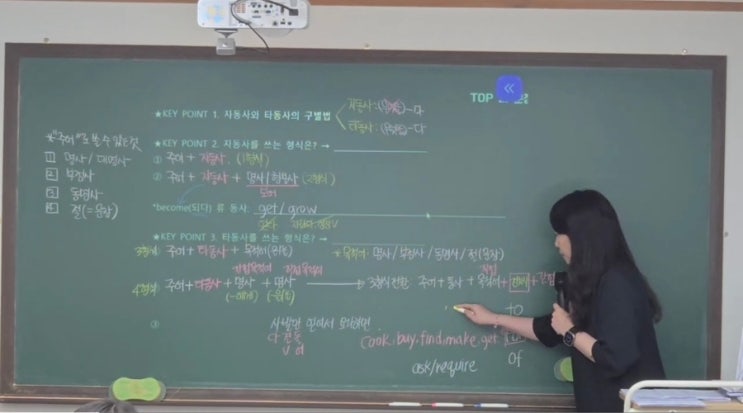 TOP
★KEY POINT 1. 자동사와 타동사의 구별법
자동사:
~다
타동사:
~다
*"주어"로 쓸 수 있는 것
1 명사/대명사
2 부정사
3 동명사
4 절(=문장)
★KEY POINT 2. 자동사를 쓰는 형식은? →
① 주어 + 자동사. (1형식)
② 주어 + 자동사 + 명사/형용사 (2형식)
보어
*become(되다) 류 동사: get/grow
★KEY POINT 3. 타동사를 쓰는 형식은? →
3형식: 주어 + 타동사 + 목적어
*목적어: 명사/부정사/동명사/절(문장)
간접목적어 직접목적어
4형식: 주어+타동사 + 명사 + 명사
(~에게) (~을)
3형식전환: 주어+동사+목적어+
직접
+간접
③
to
cook.buy.find.make.get
ask/require
of